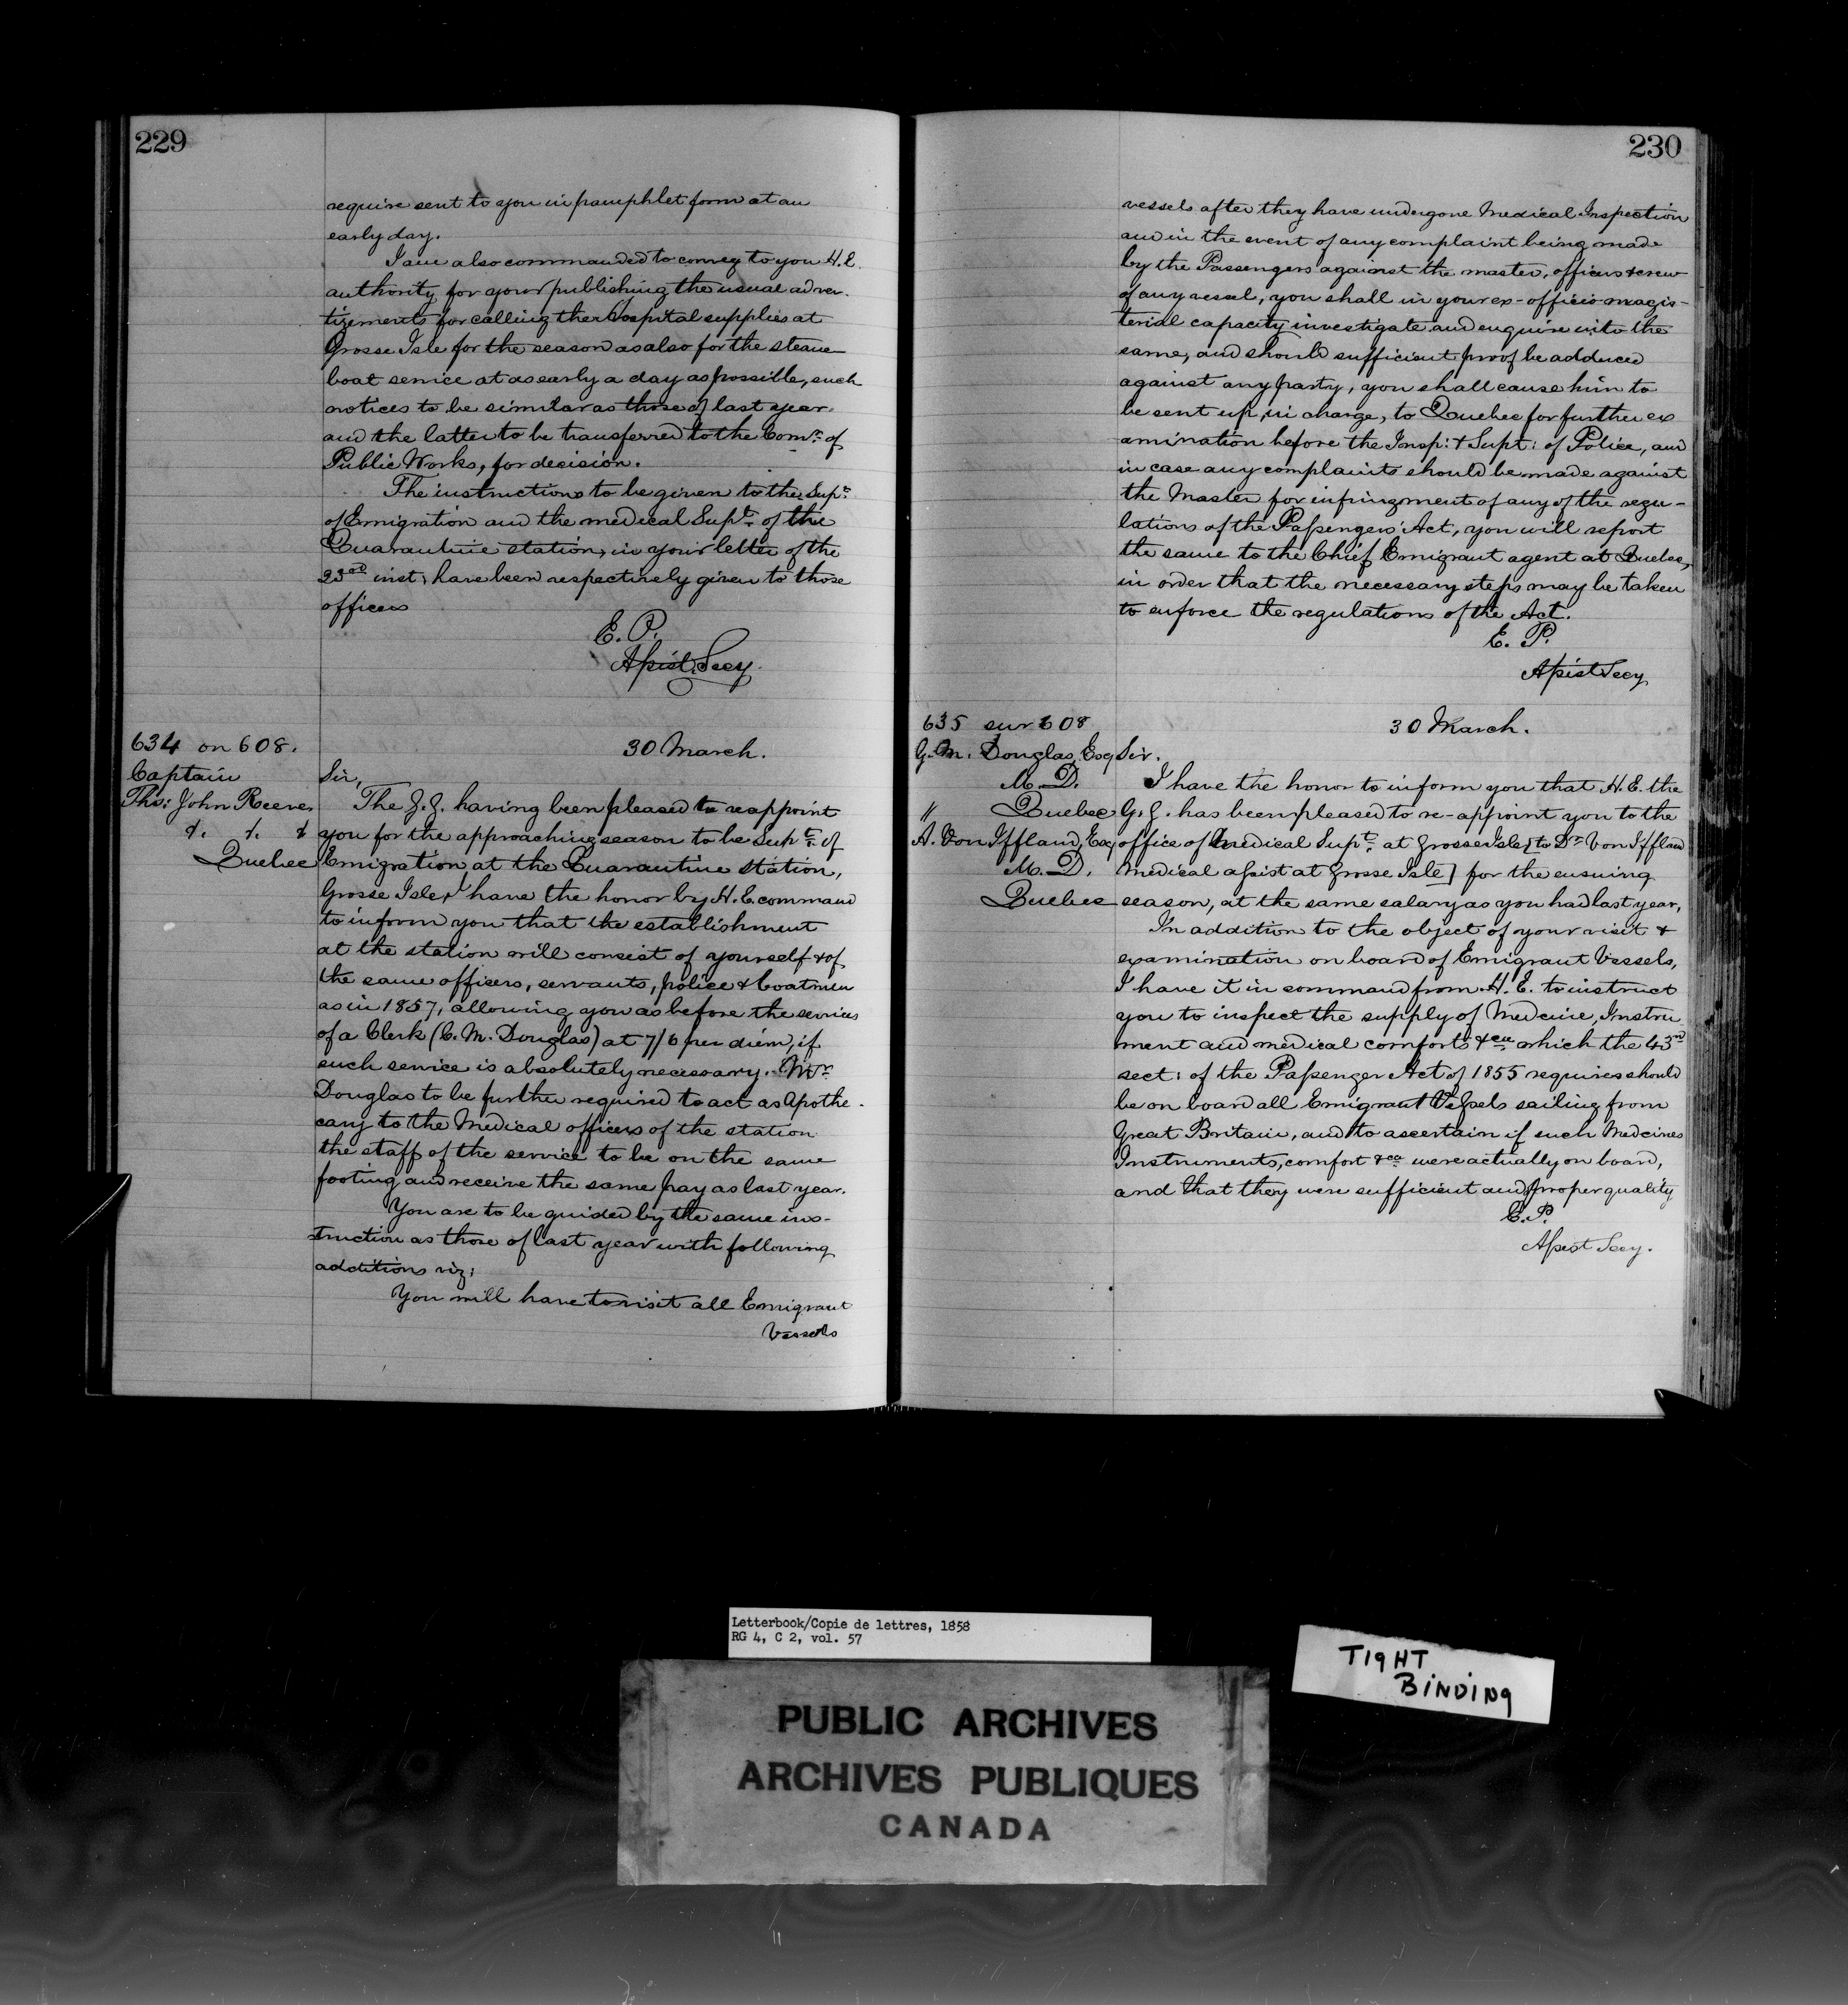 229
require sent to you in pamphlet form at an
early day.
I am also commanded to convey to you H.E.
authority for your publishing the usual adver-
tizements for calling the Hospital supplies at
Grosse Isle for the season as also for the steam
boat service at as early a day as possible, such
notices to be similar as those of last year
and the latter to be transferred to the Comr. of
Public Works, for decision.
The instructions to be given to the Supt.
of Emigration and the medical Supt. of the
Quarantine station, in your letter of the
23rd inst, have been respectively given to those
officers
E. P.
Assist. Secy.
634 on 608.
Captain
Ths: John Reeve
&. &. &
Quebec
30 March.
Sir,
The G.G. having been pleased to reappoint
you for the approaching season to be Supt. of
Emigration at the Quarantine station,
Grosse Isle, I have the honor by H.E. command
to inform you that the establishment
at the station will consist of yourself & of
the same officers, servants, police & boatmen
as in 1857, allowing you as before the services
of a Clerk (C. M. Douglas) at 7/6 per diem, if
such service is absolutely necessary. Mr.
Douglas to be further required to act as Apothe-
cary to the Medical officers of the station
the staff of the service to be on the same
footing and receive the same pay as last year.
You are to be guided by the same ins-
truction as those of last year with following
additions viz:
You will have to visit all Emigrant
Vessels
230
vessels after they have undergone Medical Inspection
and in the event of any complaint being made
by the Passengers against the master, officers & crew
of any vessel, you shall in your ex-officio magis-
terial capacity investigate and enquire into the
same, and should sufficient proof be adduced
against any party, you shall cause him to
be sent up, in charge, to Quebec for further ex
amination before the Insp: & Supt: of Police, and
in case any complaints should be made against
the Master for infringment of any of the regu-
lations of the Passengers' Act, you will report
the same to the Chief Emigrant agent at Quebec,
in order that the necessary steps may be taken
to enforce the regulations of the Act.
E. P.
Assist Secy
635 sur 608
G. M. Douglas, Esq
M. D.
" Quebec
A. Von Iffland, Esq
M. D.
Quebec
30 March.
Sir.
I have the honor to inform you that H.E. the
G.G. has been pleased to re-appoint you to the
office of Medical Supt. at Grosse Isle [to Dr. Von Iffland
Medical assist at Grosse Isle] for the ensuing
season, at the same salary as you had last year,
In addition to the object of your visit &
examination on board of Emigrant Vessels,
I have it in command from H.E. to instruct
you to inspect the supply of Medecine, Instru
ment and medical comforts &ca which the 43rd
sect: of the Passenger Act of 1855 requires should
be on board all Emigrant Vessels sailing from
Great Britain, and to ascertain if such Medcines
Instruments, comfort &ca were actually on board,
and that they were sufficient and proper quality
E. P.
Assist Secy.
Letterbook/Copie de lettres, 1858
RG 4, C 2, vol. 57
TIGHT
BINDING
PUBLIC ARCHIVES
ARCHIVES PUBLIQUES
CANADA